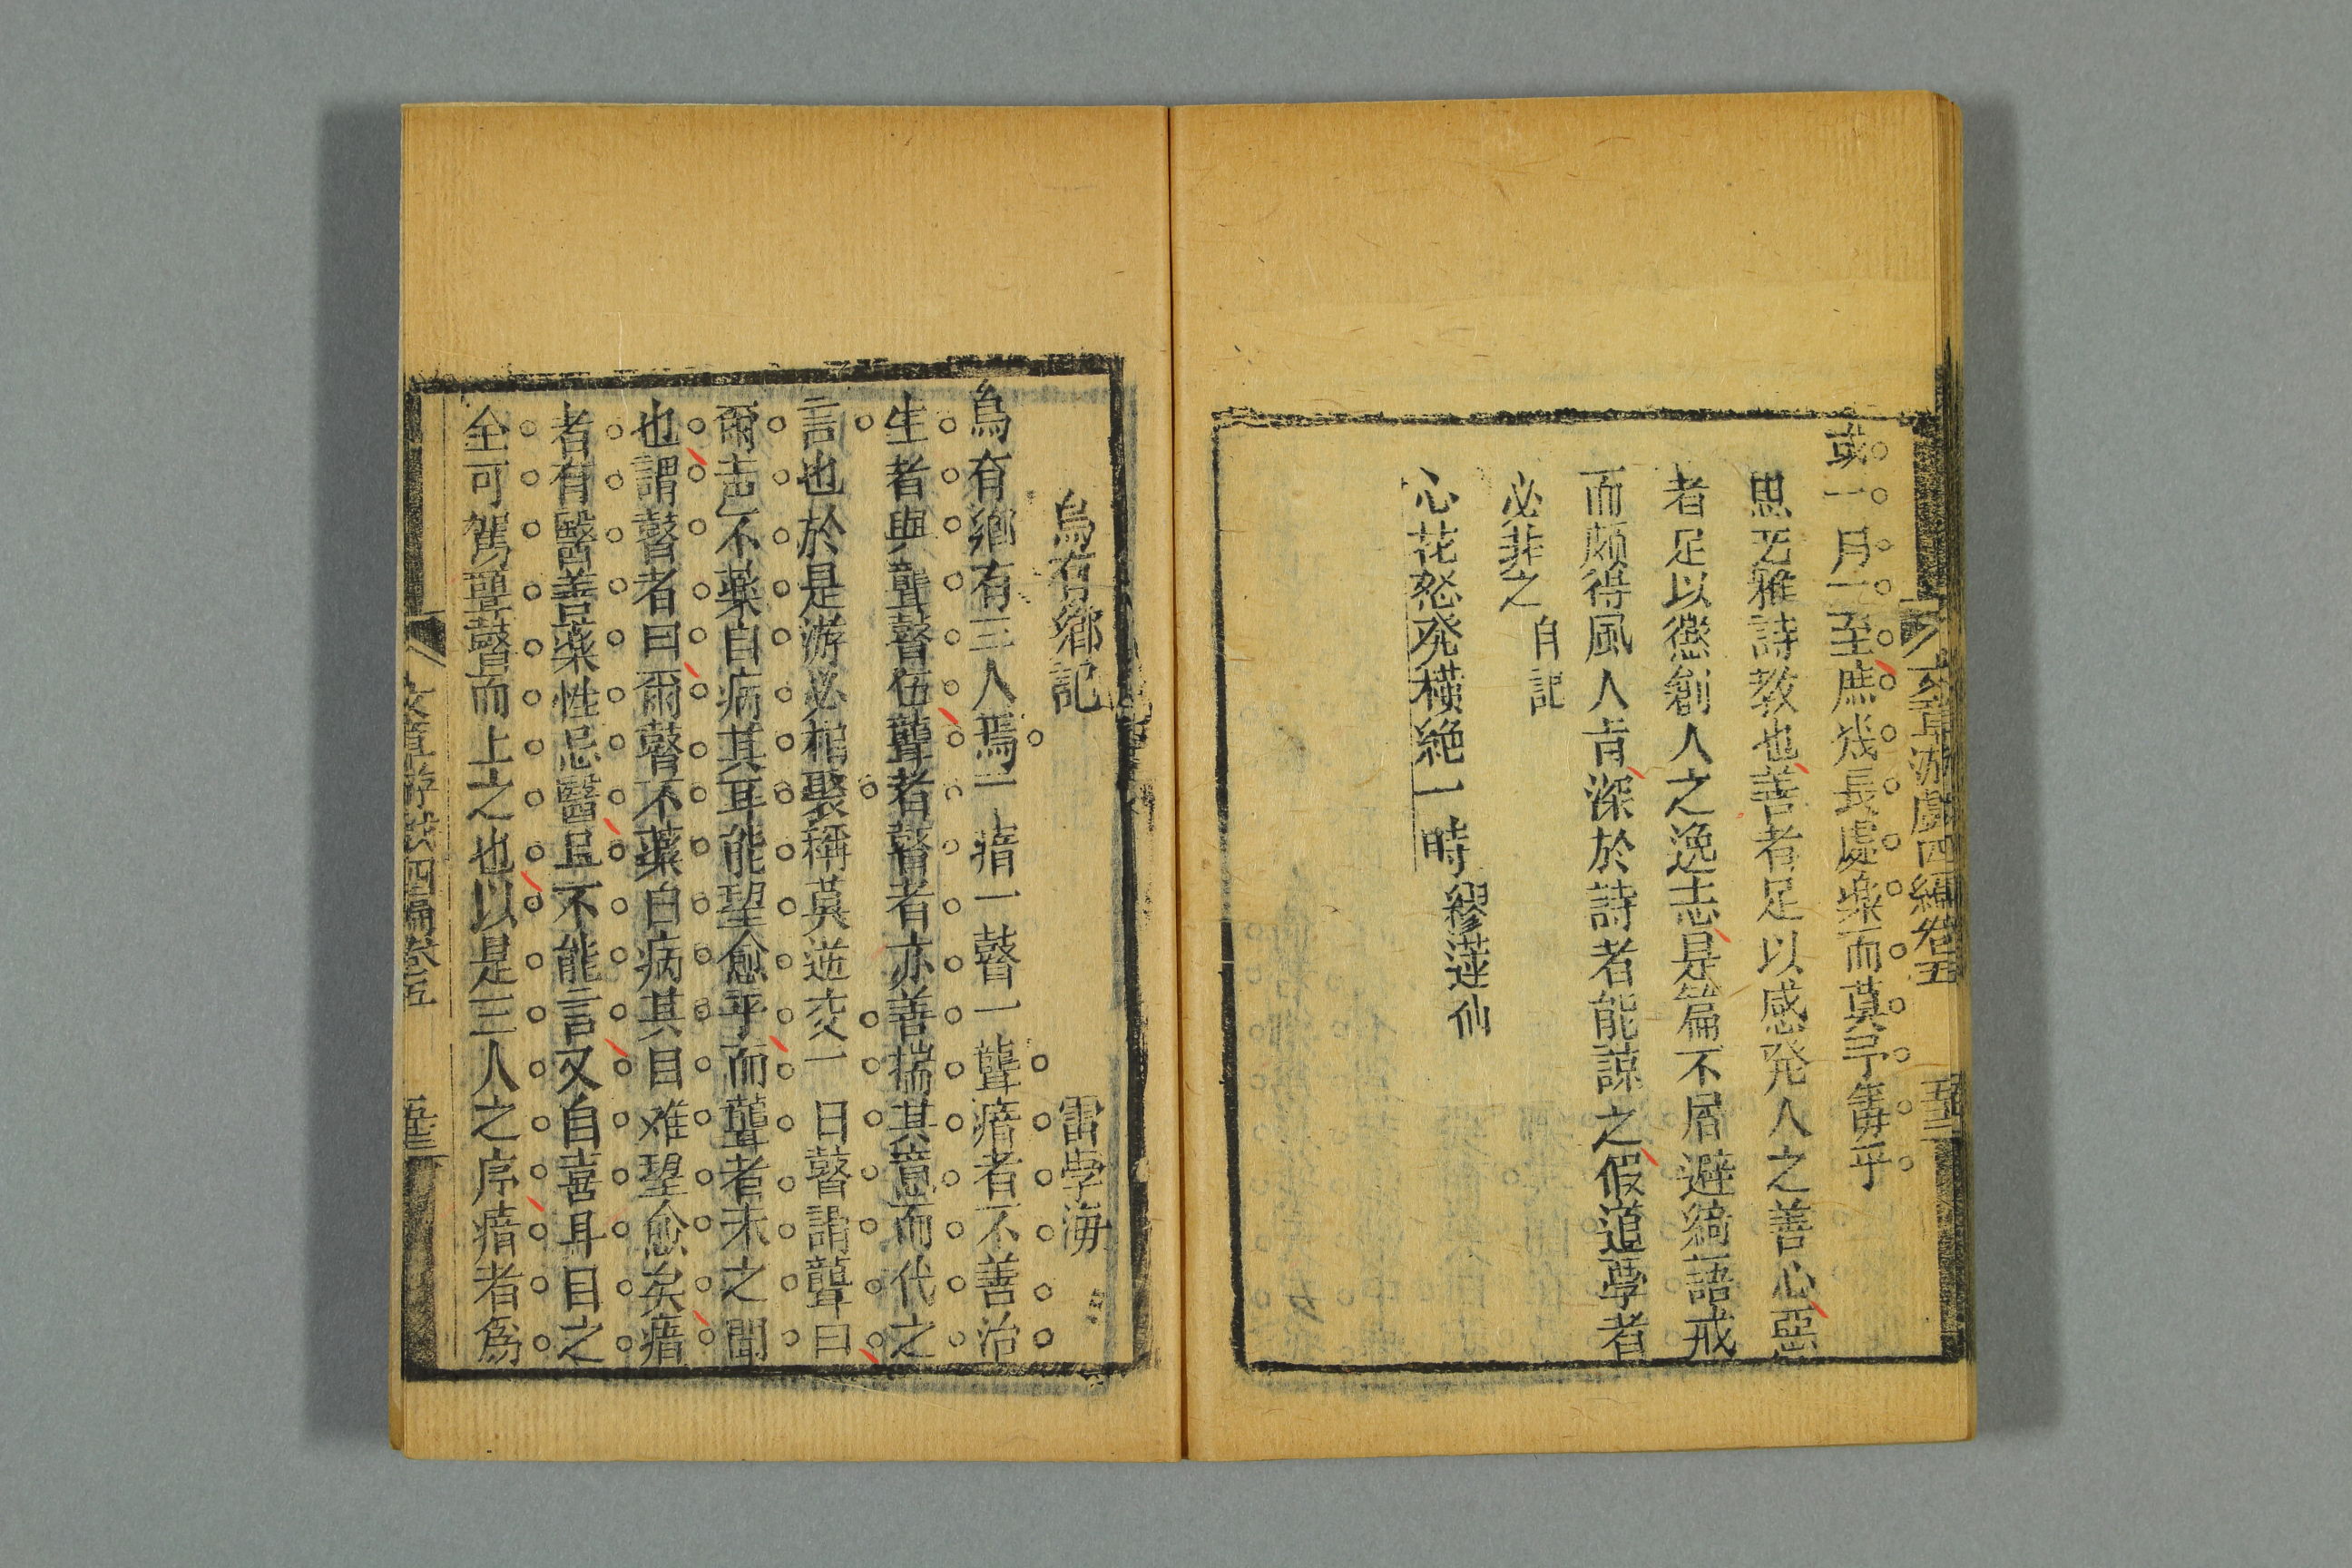 文章游戲四編卷五
或一月一至庶㡬長處樂而莫予毒乎
思无雅詩教也善者足以感発人之善心惡
者足以懲創人之逸志是篇不屑避綺語戒
而頗得風人肯深於詩者能諒之假道學者
必非之
自記
心花怒発横絶一時
繆蓮仙
烏有鄉記
雷學海
烏有鄉有三人焉一瘖一瞽一聾瘖者不善治
生者與聾瞽伍聾者瞽者亦善揣其意而代之
言也於是游必棺聚稱莫逆交一日瞽謂聾曰
爾声不藥自病其耳能望愈乎而聾者未之聞
也謂瞽者曰爾瞽不藥自病其目难望愈矣瘖
者有醫善藥性忌醫且不能言又自喜耳目之
全可駕聾瞽而上之也以是三人之序瘖者爲
文章游戲四編卷五